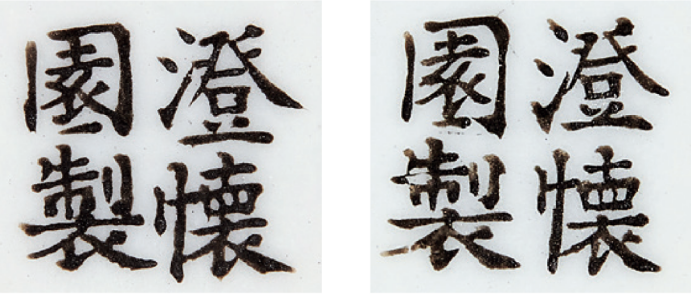 澄懷
園製
澄懷
園製